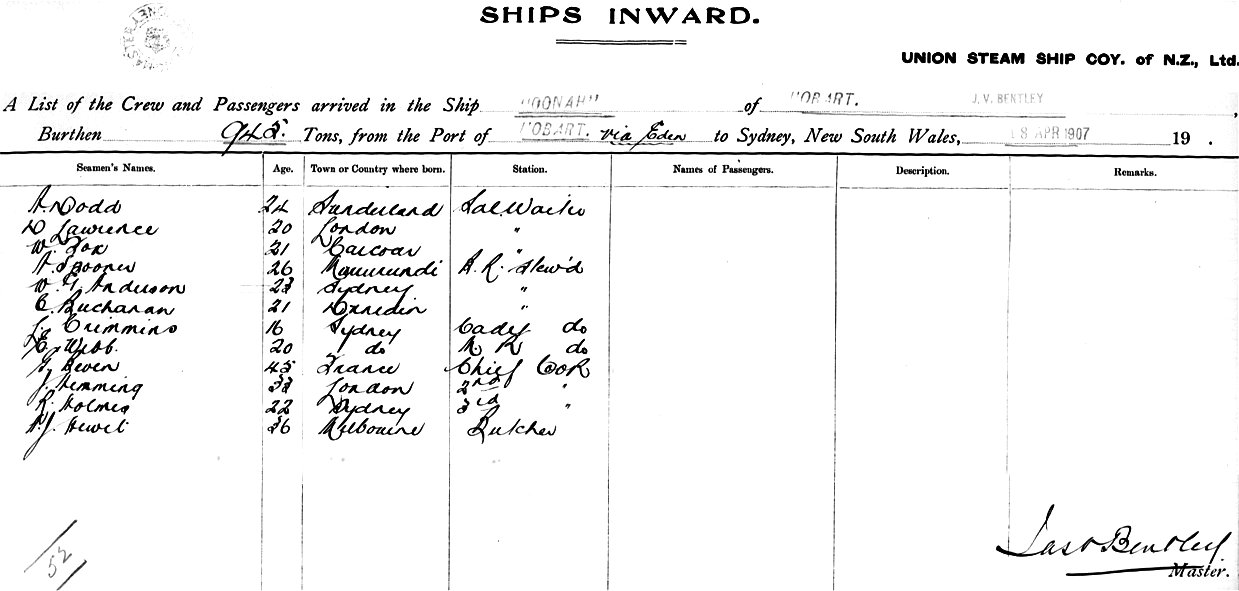 SHIPS INWARD.
UNION STEAM SHIP COY. of N.Z., Ltd.
A List of the Crew and Passengers arrived in the Ship "OONAH" of HOBART. J. V. BENTLEY,
Burthen 945. Tons, from the Port of HOBART. via Eden to Sydney, New South Wales, 8 APR 1907 19 .
Seamen's Names. Age. Town or Country where born. Station. Names of Passengers. Description. Remarks.
A. Dodd 24 Sunderland Sal Waiter
D Lawrence 20 London "
W. Fox 21 Carcoar "
A. Spooner 26 Murrurundi A. R. Stew'd
W. G. Anderson 23 Sydney "
C. Buchanan 21 Dunedin "
Crimmins 16 Sydney do
Webb. 20 do R do
Beven 45 France Chief Cook
J. Hemming 33 London 2nd "
R. Holmes 22 Sydney 3rd "
J. Hewit 36 Melbourne Butcher
52
Bentley
Master.